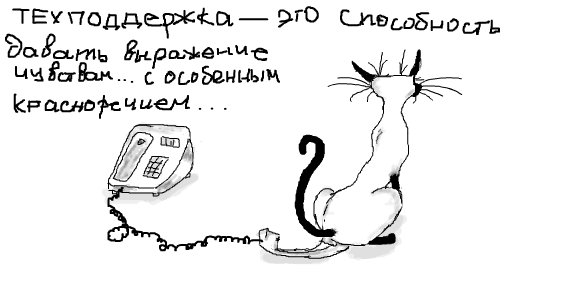 ТЕХПОДДЕРЖКА — ЭТО СПОСОБНОСТЬ
давать выражение
чувствам... с особенным
красноречием...